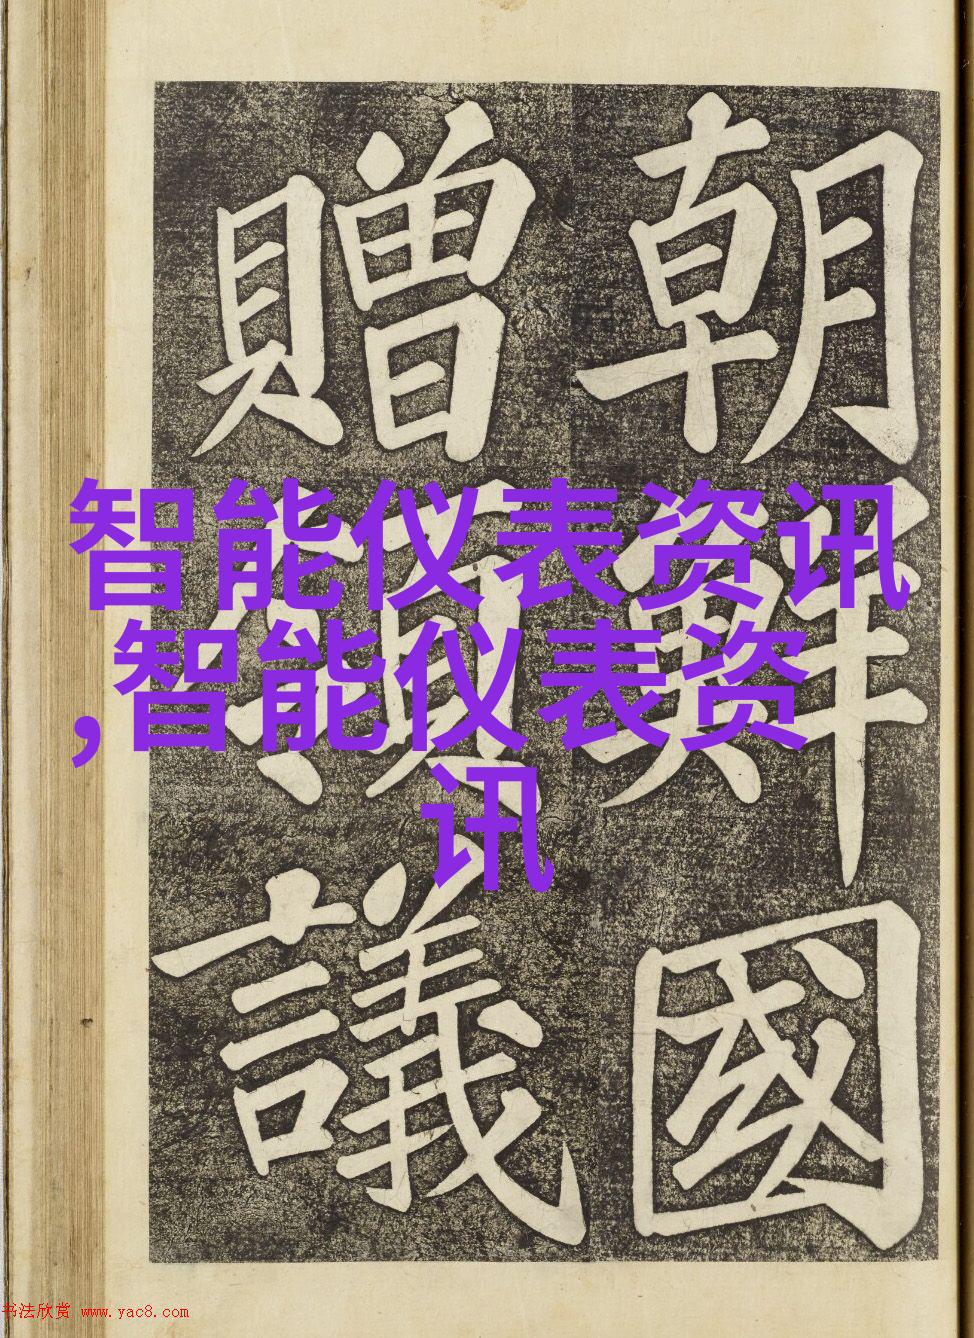 朝鮮國
贈領議
智能仪表资讯
,智能仪表资
讯
书法欣赏 www.yac8.com